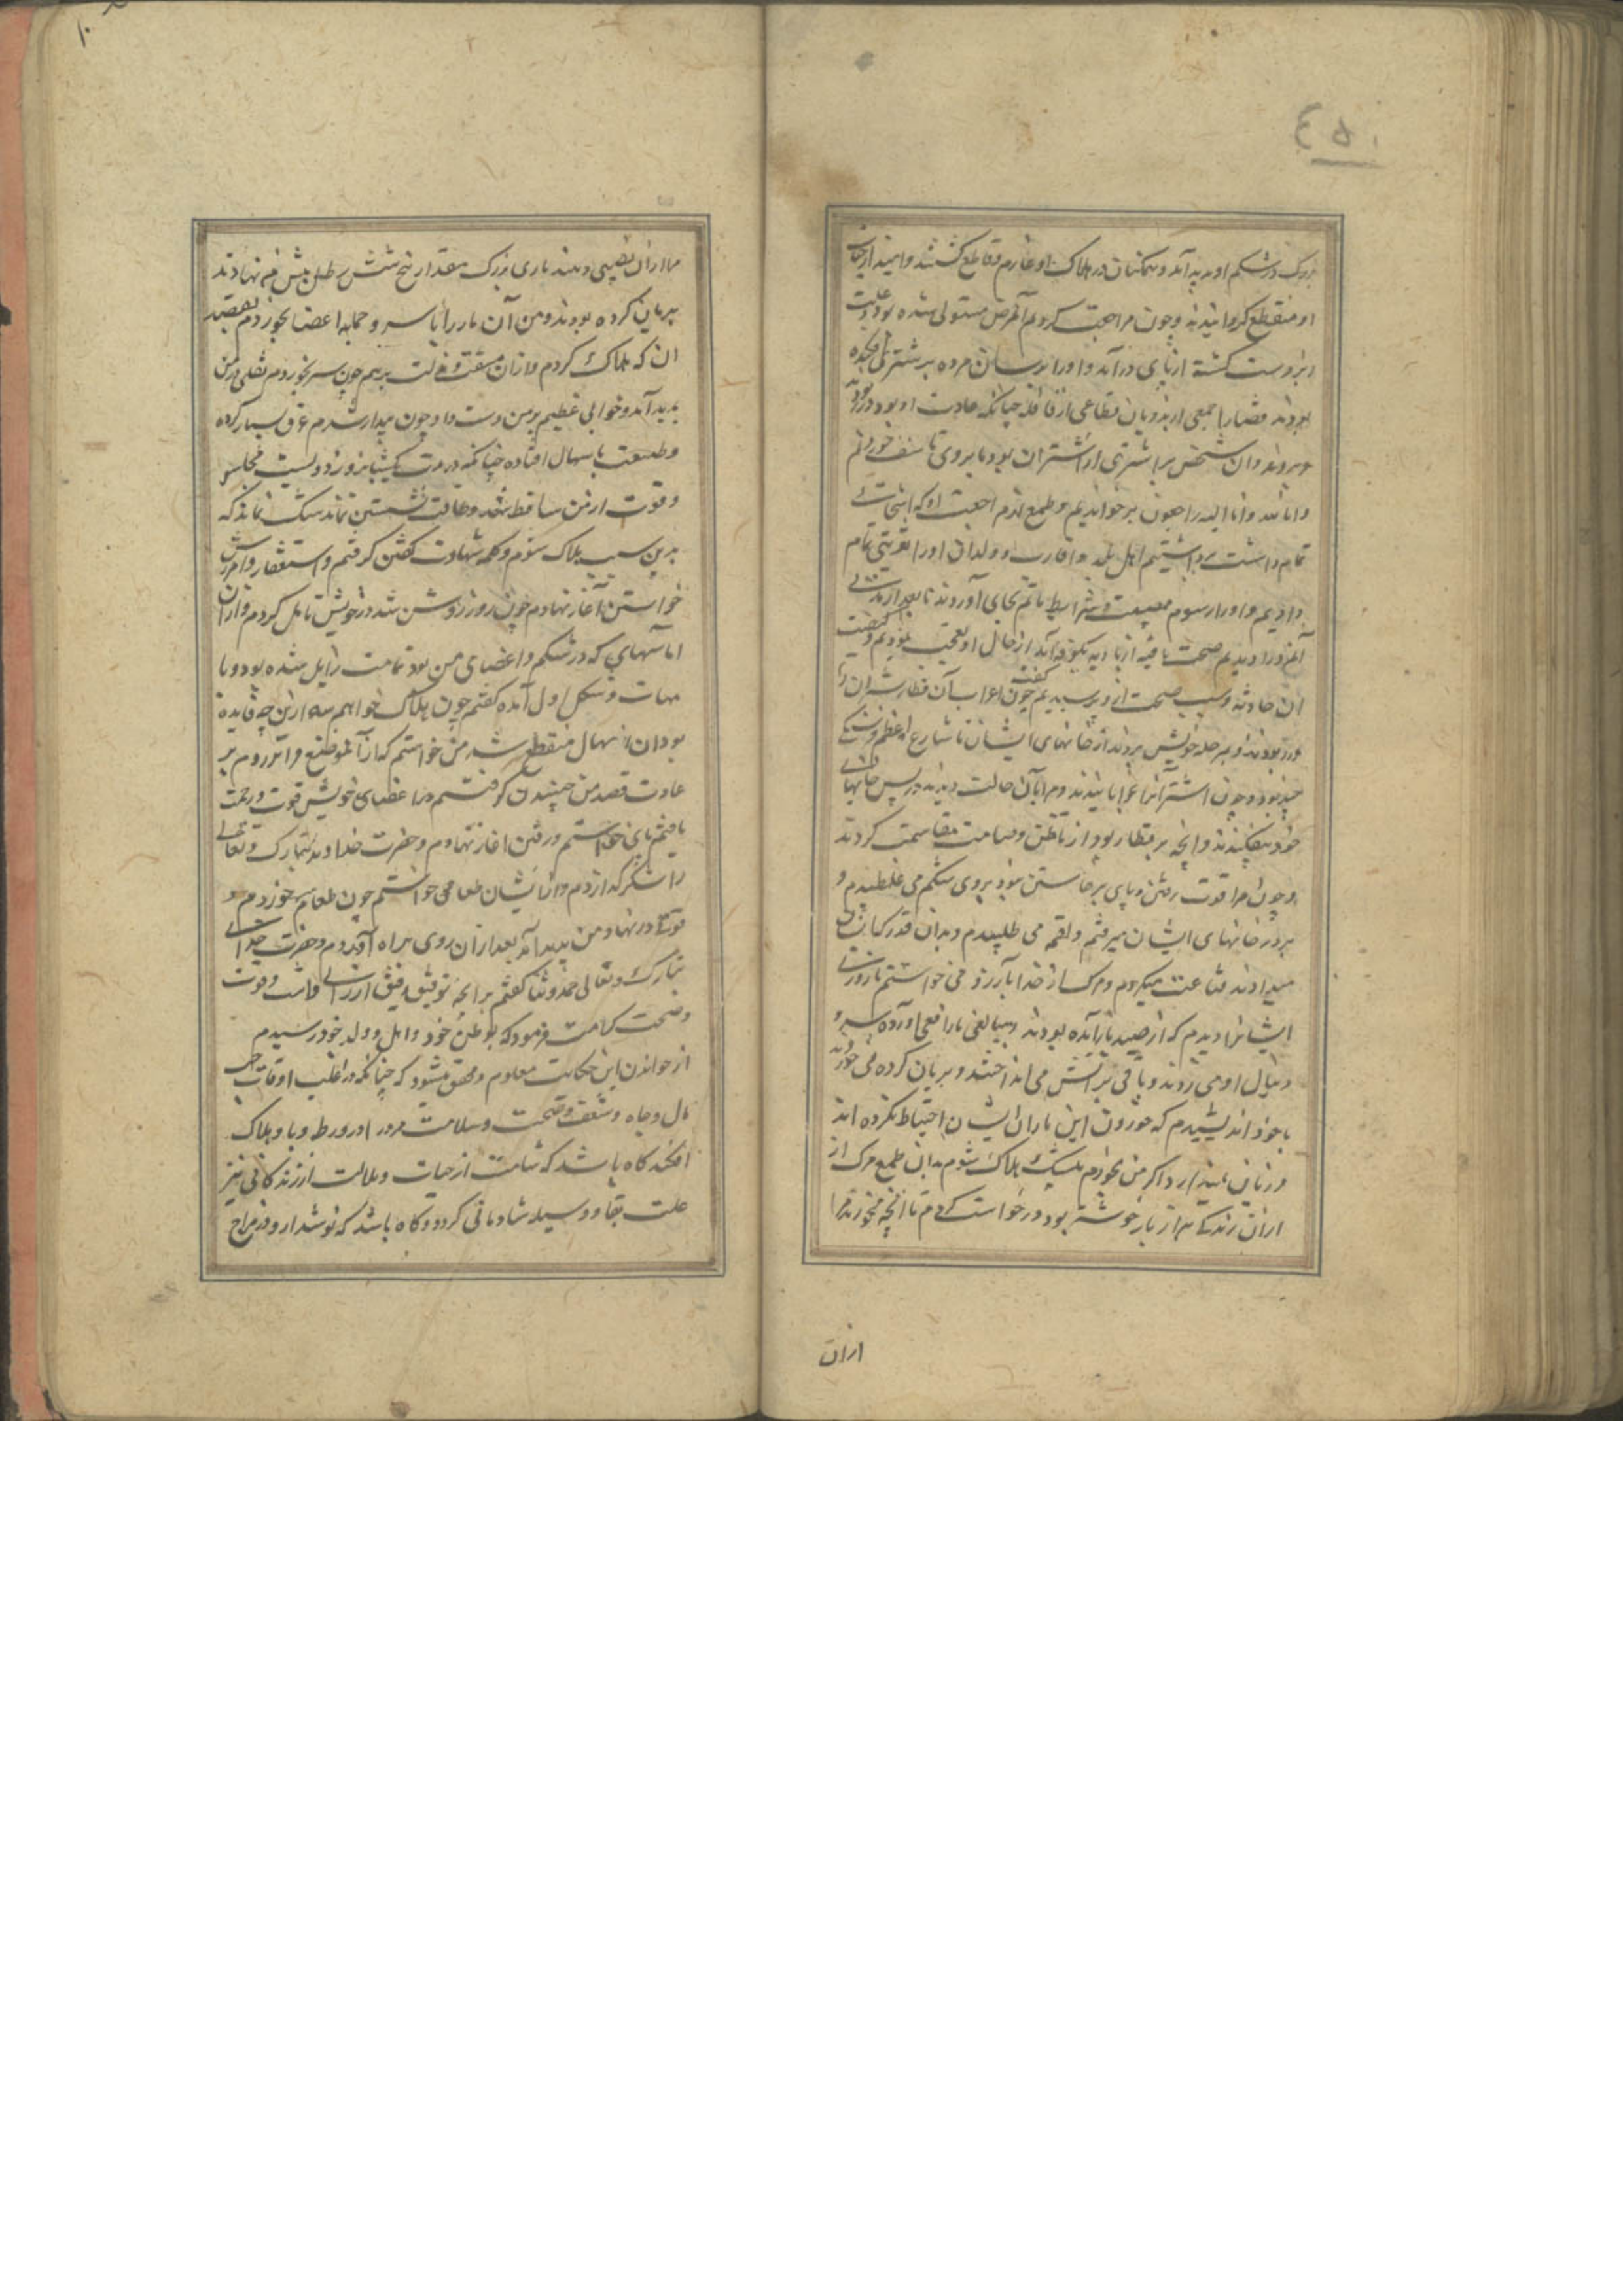 ٤٥٠
بزرک در شکم او پدید آمد و همکنان در هلاک او عازم و قاطع کشتند و امید از حیات
او منقطع کردانیدند و چون مراجعت کردیم آن مرض مستولی شده بود و علت
زبردست کشته از پای درآمد و او را بر سان مرده بر شتری افکنده
بودند قضا را جمعی از بدویان قطاعی از قافله چنانکه عادت او بود در ربودند
و بردند و آن شخص بر اشتری از آن اشتران بود ما بر وی تاسف خوردیم
و انا لله و انا الیه راجعون برخواندیم و طمع از مراجعت او که
تمام داشت برداشتیم اهل بلد و اقارب و ولدان او را تعزیتی تمام
دادیم و او را رسوم مصیبت و شرایط ماتم بجای آوردند تا بعد از مدتی
آن مرد را دیدیم صحت یافته از بادیه بکوفه آمد از حال او تعجب نمودیم و کیفیت
آن حادثه و سبب صحت از وی پرسیدیم گفت چون اعراب آن قطار شتران را
در ربودند و بمرحله خویش بردند از خانهای ایشان تا شارع اعظم فرسنکی
چند بود و چون اشتران را فرو خوابانیدند و مرا بآن حالت دیدند در پس خانهای
خود بیفکندند و آنچه بر قطار بود از ناطق و صامت مقاسمت کردند
و چون مرا قوت رفتن و پای برخاستن نبود بروی شکم می غلطیدم و
بر در خانهای ایشان میرفتم و لقمه می طلبیدم و بدان قدر که ایشان
میدادند قناعت میکردم و مرک از خدا بآرزو می خواستم تا روزی
ایشانرا دیدم که از صید باز آمده بودند و مبالغی مار افعی آورده سر و
دنبال او می زدند و باقی بر آتش می انداختند و بریان کرده می خوردند
با خود اندیشیدم که خوردن این ماران ایشان احتیاط نکرده اند
و زیانی نمیدارد اگر من بخورم بیشک هلاک شوم بدان طمع مرک از
ازان زندکی هزار بار خوشتر بود درخواست کردم تا آنچه میخورند مرا
ازان
مرا ازان نصیبی دهند ماری بزرک مقدار پنج شش رطل پیش من نهادند
بریان کرده بودند و من آن مار را با سر و جمله اعضا بخوردم بقصد
آن که هلاک کردم و ازان مشقت و مذلت برهم چون سیر بخوردم ثقلی در من
پدید آمد و خوابی عظیم بر من دست داد چون بیدار شدم عرق بسیار کرده
و طبیعت باسهال افتاده چنانکه در مدت یکشبانروز دویست مجلس
و قوت از من ساقط شد و طاقت نشستن نماند شک نماند که
بدین سبب هلاک شوم و کلمه شهادت گفتن کرفتم و استغفار و آمرزش
خواستن آغاز نهادم چون روز روشن شد در خویش تامل کردم و ازان
اماسهای که در شکم و اعضای من بود تمامت زایل شده بود و با
مهات و شکل اول آمده گفتم چون هلاک خواهم شد ازین چه فایده
بود آن اسهال منقطع شد من خواستم که از آن موضع فراتر روم بر
عادت قصد من جنبیدن کرفتم در اعضای خویش قوت و رحمت
یافتم بپای خواستم و رفتن آغاز نهادم و حضرت خداوند تبارک و تعالی
را شکر گذاردم و از ایشان طعامی خواستم چون طعام بخوردم
قوتی در نهاد من پدید آمد بعد ازان روی براه آوردم و حضرت خدای
تبارک و تعالی حمد و ثنا گفتم بر آنچه توفیق رفیق ارزانی داشت و قوت
و صحت کرامت فرمود که بوطن خود و اهل و ولد خود رسیدم
از خواندن این حکایت معلوم و محقق میشود که چنانکه در اغلب اوقات حب
مال و جاه و شعف و صحت و سلامت مرد را در ورطه وبا و هلاک
افکند کاه باشد که شامت از حیات و ملالت از زندکانی نیز
علت بقا و وسیله شادمانی کردد و کاه باشد که نوشدارو در مزاج